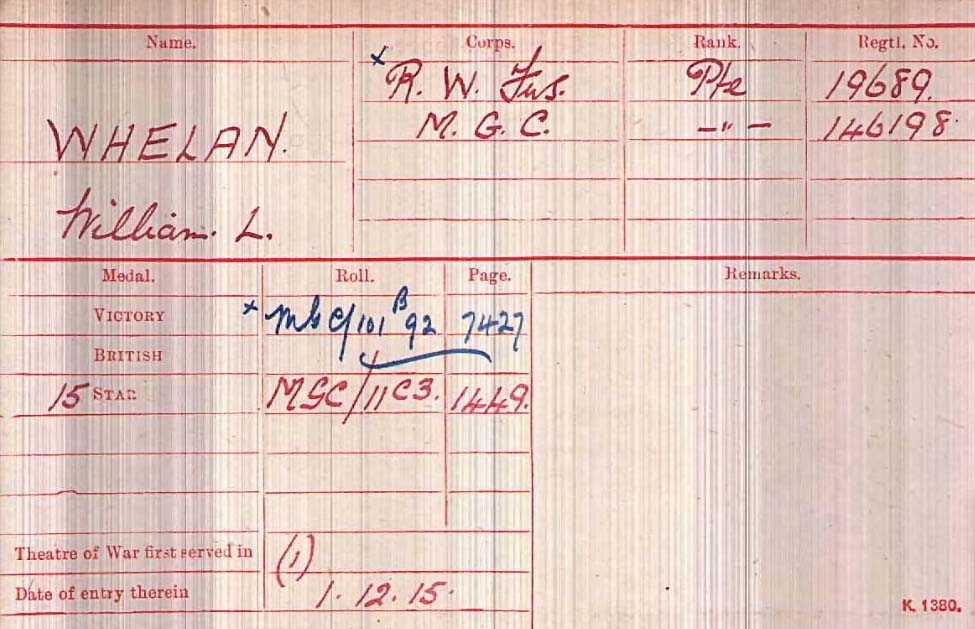 Name. Corps. Rank. Regtl. No.
x R. W. Fus. Pte 19689.
WHELAN. M. G. C. —"— 146198.
William. L.
Medal. Roll. Page. Remarks.
VICTORY x MGC/101 B 92 7427
BRITISH
15 STAR MGC/11C3. 1449.
Theatre of War first served in (1)
Date of entry therein 1.12.15.
K. 1380.